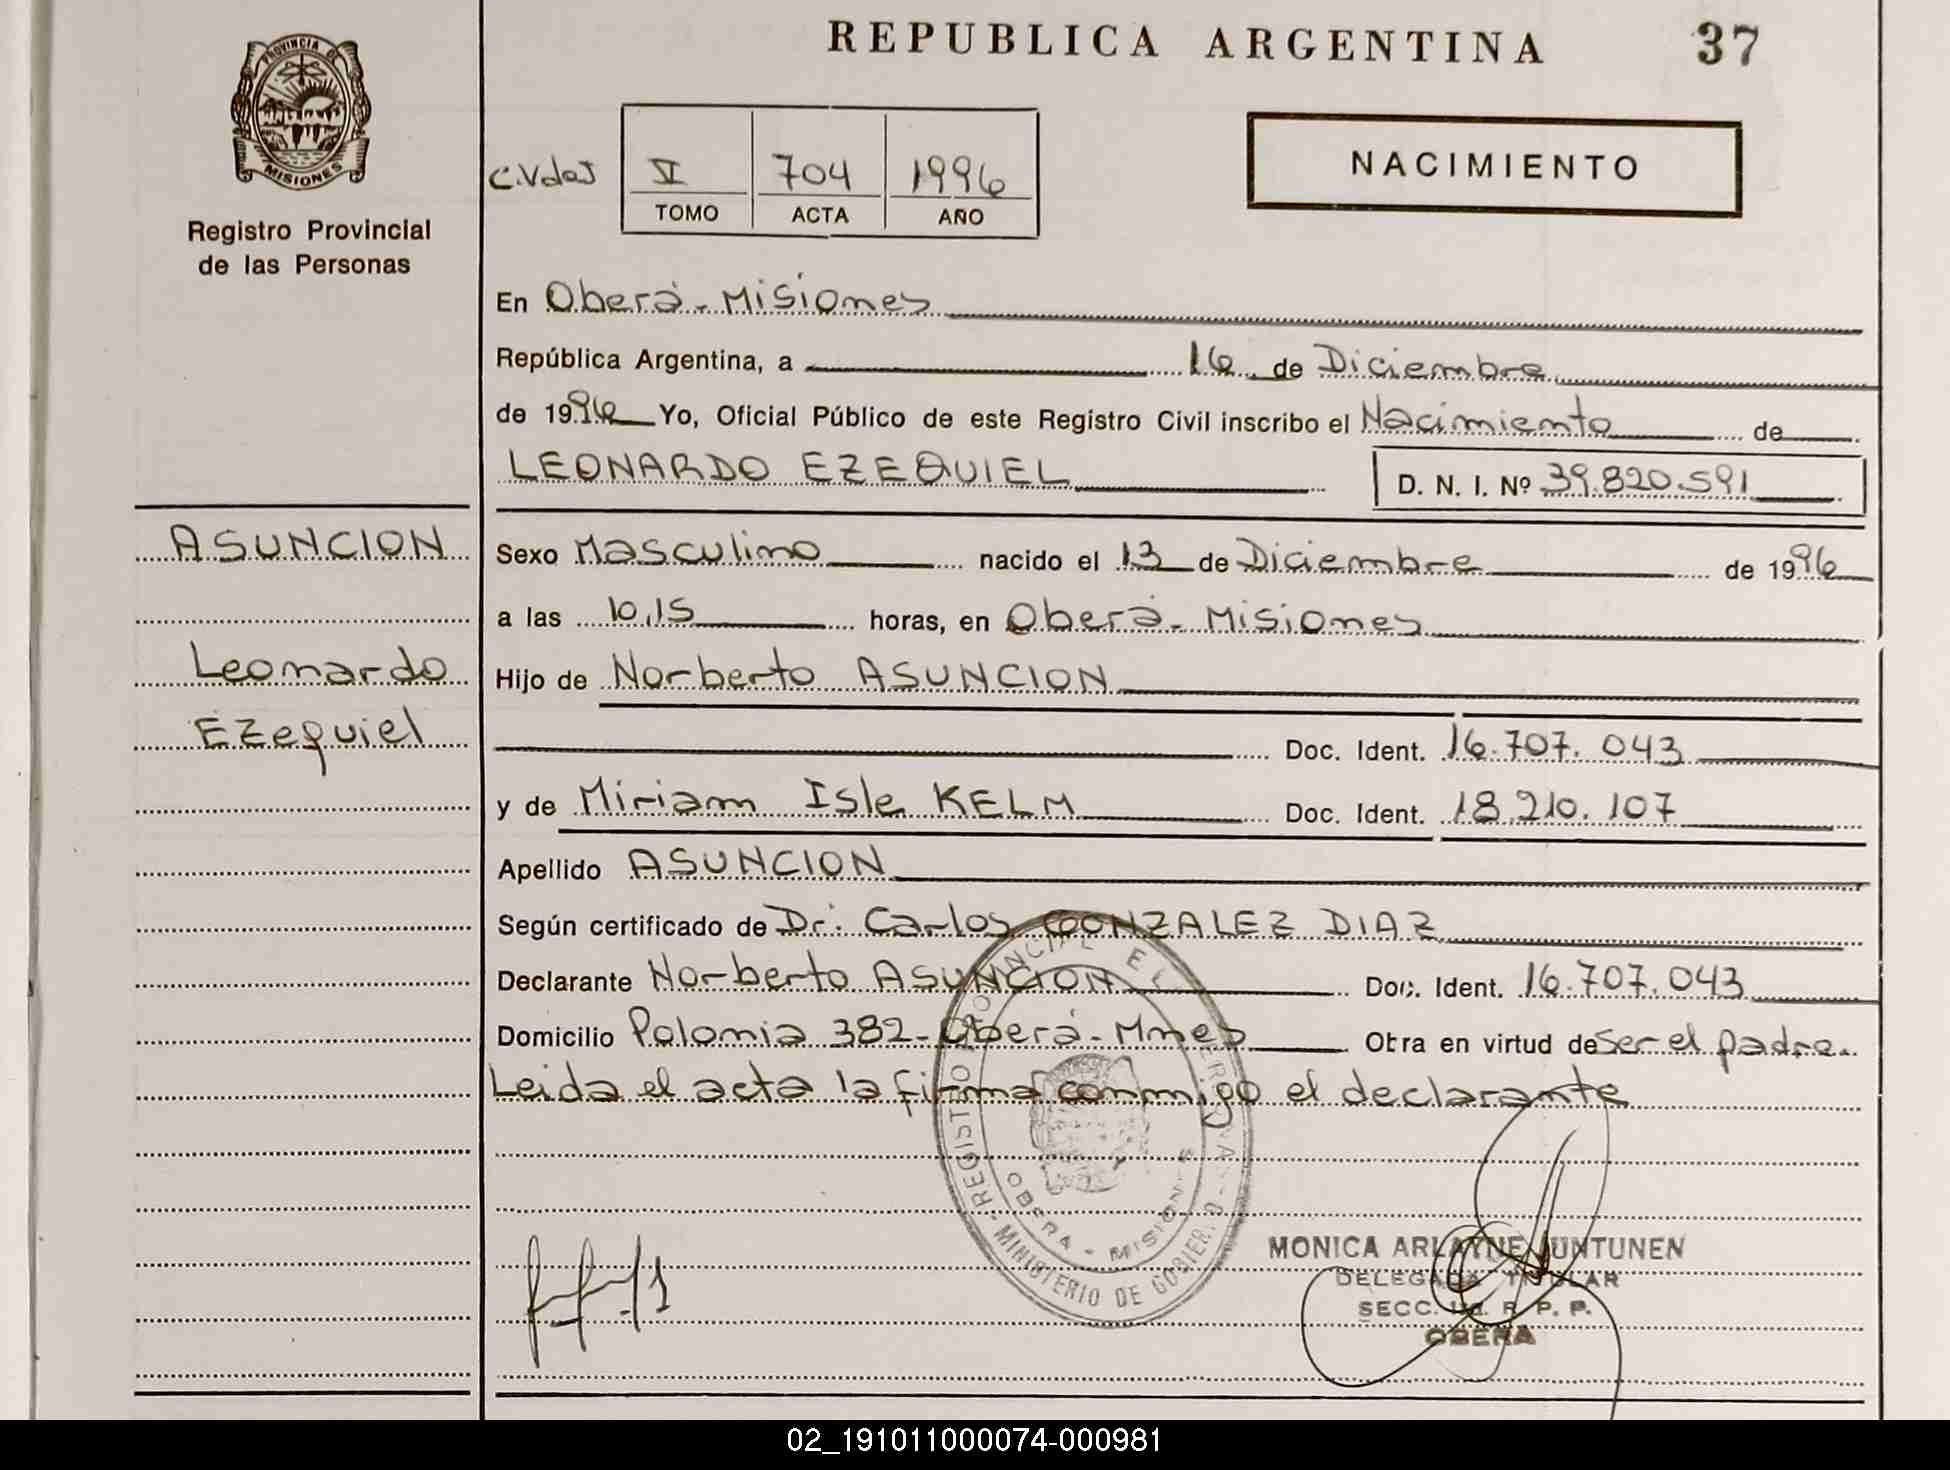 REPUBLICA ARGENTINA
37
PROVINCIA DE
MISIONES
Registro Provincial
de las Personas
C.Vdas
V 704 1996
TOMO ACTA AÑO
NACIMIENTO
En Oberá-Misiones
República Argentina, a 16 de Diciembre
de 1996 Yo, Oficial Público de este Registro Civil inscribo el Nacimiento de
LEONARDO EZEQUIEL
D. N. I. Nº 39.820.591
ASUNCION
Leonardo
Ezequiel
Sexo Masculino nacido el 13 de Diciembre de 1996
a las 10,15 horas, en Oberá-Misiones
Hijo de Norberto ASUNCION
Doc. Ident. 16.707.043
y de Miriam Isle KELM Doc. Ident. 18.210.107
Apellido ASUNCION
Según certificado de Dr. Carlos GONZALEZ DIAZ
Declarante Norberto ASUNCION Doc. Ident. 16.707.043
Domicilio Polonia 382-Oberá-Mnes Obra en virtud de ser el padre.
Leida el acta la firma conmigo el declarante
REGISTRO PROVINCIAL
MINISTERIO DE GOBIERNO
OBERA - MISIONES
MONICA ARLAYNE JUNTUNEN
DELEGADA TITULAR
SECC. R. P. P.
OBERA
02_191011000074-000981